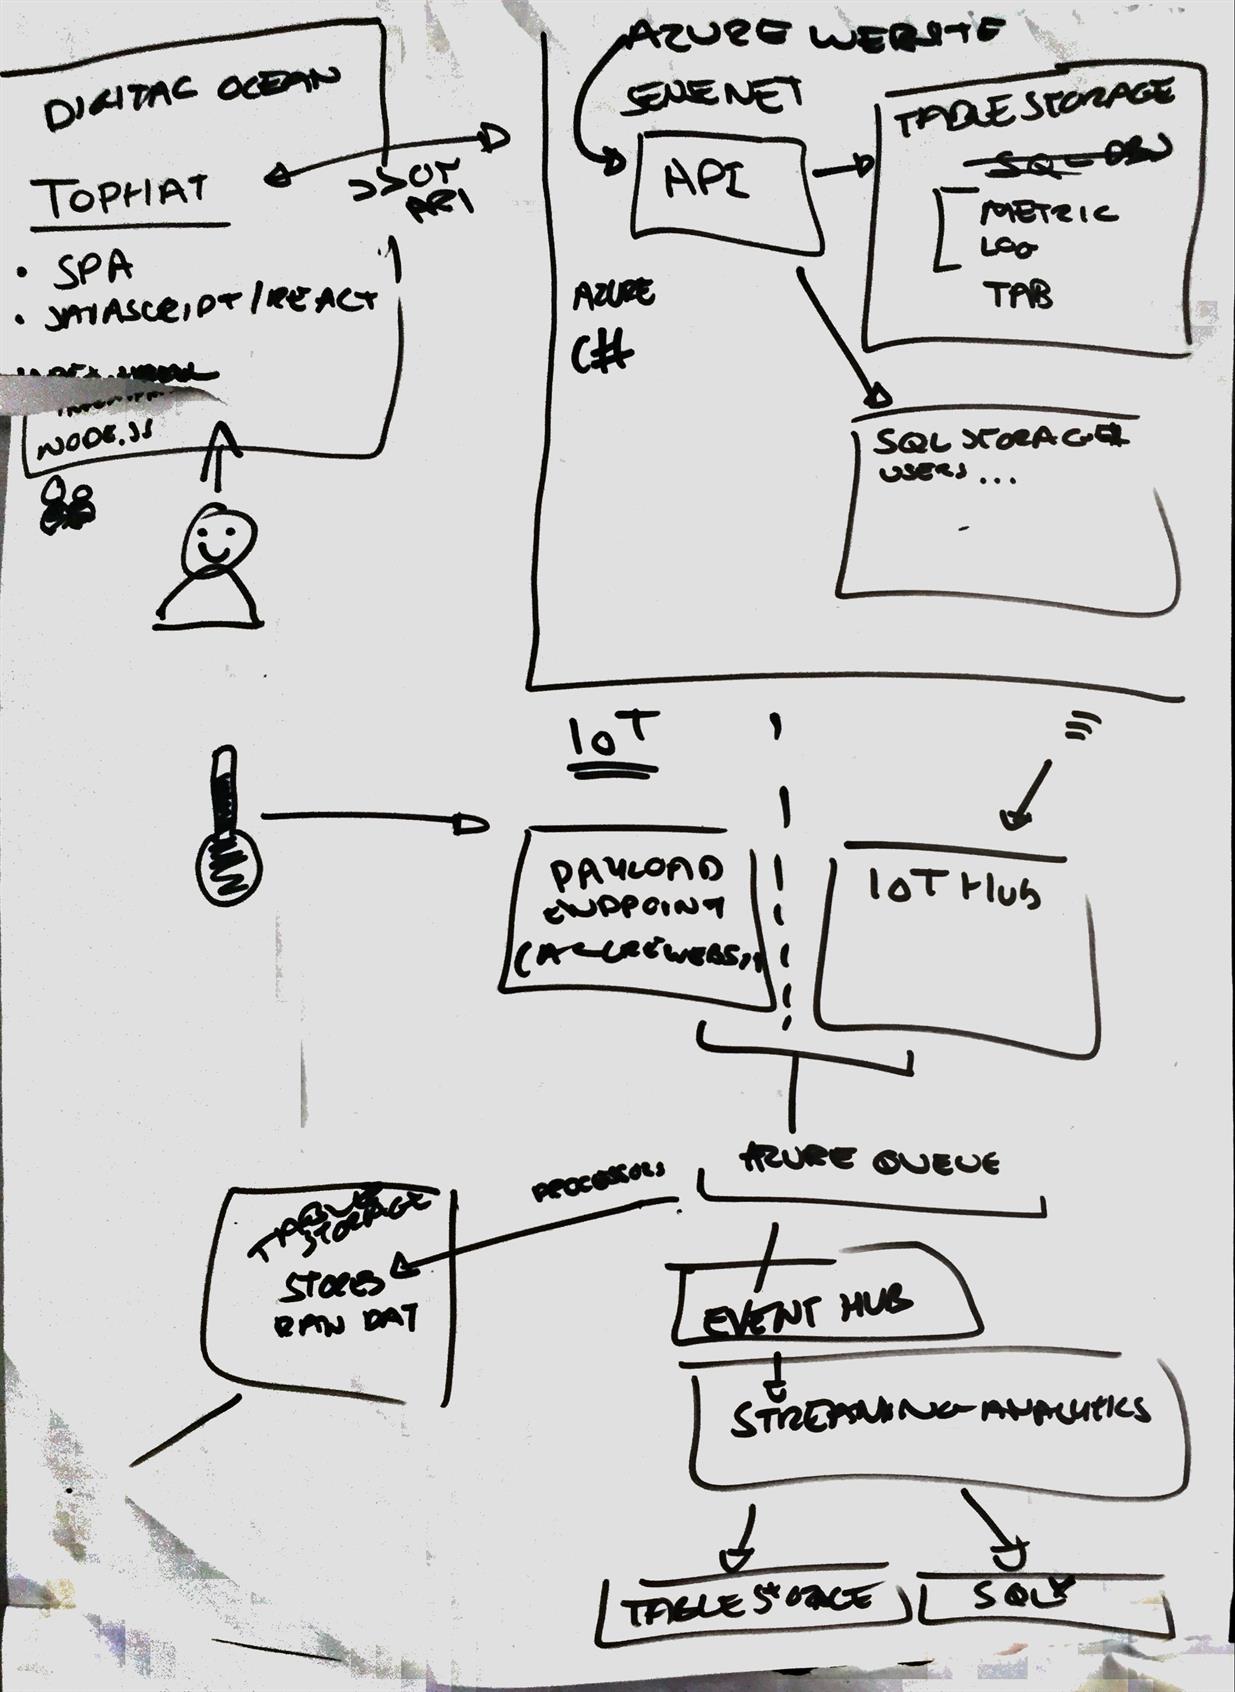 DIGITAL OCEAN
TOPHAT
• SPA
• JAVASCRIPT/REACT
NODE.JS
API
AZURE WEBSITE
SENENET
API
AZURE
C#
TABLE STORAGE
METRIC
LOG
TAB
SQL STORAGE
USERS ...
IOT
PAYLOAD
ENDPOINT
IOT HUB
AZURE QUEUE
PROCESSORS
TABLE
STORAGE
STORES
RAW DAT
EVENT HUB
STREAMING ANALYTICS
TABLE STORAGE
SQL